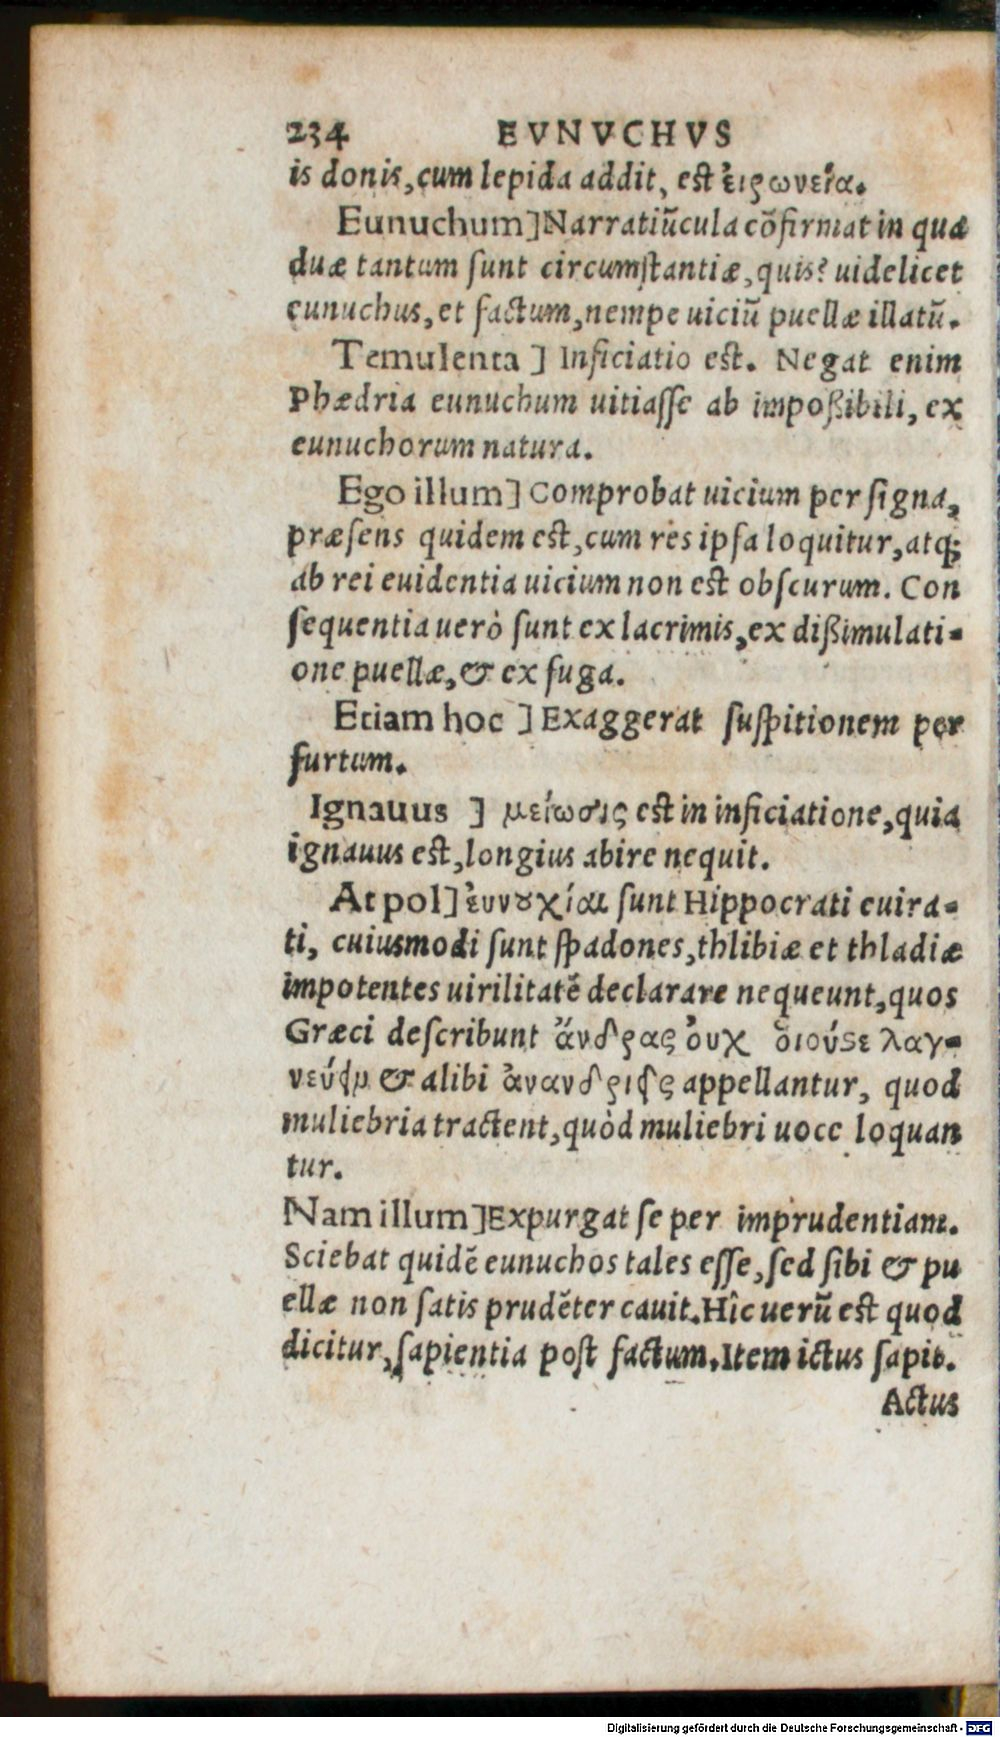 234 EVNVCHVS
is donis,cum lepida addit, est ἐιρωνεία.
Eunuchum]Narratiũcula cõfirmat in qua
duæ tantum sunt circumstantiæ,quis? uidelicet
eunuchus,et factum,nempe uiciũ puellæ illatũ.
Temulenta ] Inficiatio est. Negat enim
Phædria eunuchum uitiasse ab impoßibili, ex
eunuchorum natura.
Ego illum] Comprobat uicium per signa,
præsens quidem est,cum res ipsa loquitur,atq;
ab rei euidentia uicium non est obscurum. Con
sequentia uerò sunt ex lacrimis,ex dißimulati-
one puellæ,& ex fuga.
Etiam hoc ] Exaggerat suspitionem per
furtum.
Ignauus ] μείωσις est in inficiatione,quia
ignauus est,longius abire nequit.
At pol]ἐυνουχίαι sunt Hippocrati euira-
ti, cuiusmodi sunt spadones,thlibiæ et thladiæ
impotentes uirilitatẽ declarare nequeunt,quos
Græci describunt ἄνδρας ὀυχ λαγ-
& alibi appellantur, quod
muliebria tractent,quòd muliebri uoce loquan
tur.
Nam illum]Expurgat se per imprudentiam.
Sciebat quidẽ eunuchos tales esse,sed sibi & pu
ellæ non satis prudẽter cauit.Hîc uerũ est quod
dicitur,sapientia post factum.Item ictus sapit.
Actus
Digitalisierung gefördert durch die Deutsche Forschungsgemeinschaft - DFG